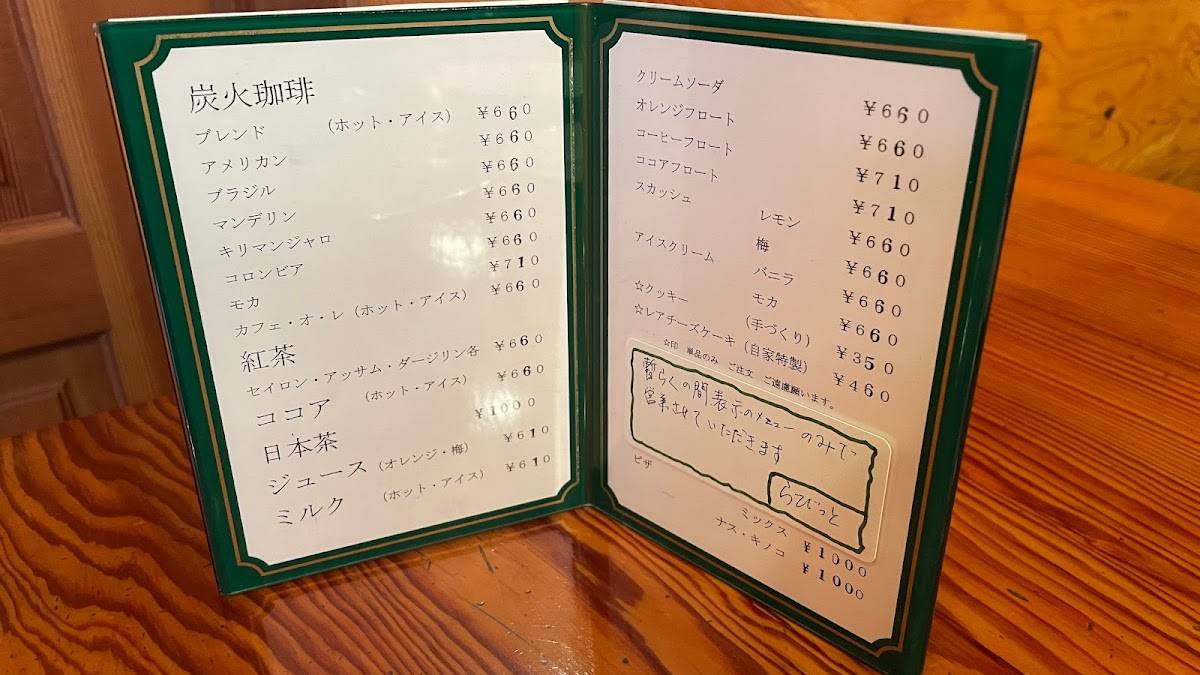 炭火珈琲
ブレンド (ホット・アイス) ¥660
アメリカン ¥660
ブラジル ¥660
マンデリン ¥660
キリマンジャロ ¥660
コロンビア ¥660
モカ ¥710
カフェ・オ・レ (ホット・アイス) ¥660
紅茶
セイロン・アッサム・ダージリン各 ¥660
ココア (ホット・アイス) ¥660
日本茶 ¥1000
ジュース (オレンジ・梅) ¥610
ミルク (ホット・アイス) ¥610
クリームソーダ ¥660
オレンジフロート ¥660
コーヒーフロート ¥710
ココアフロート ¥710
スカッシュ レモン ¥660
梅 ¥660
アイスクリーム バニラ ¥660
モカ ¥660
☆クッキー (手づくり) ¥350
☆レアチーズケーキ (自家特製) ¥460
☆印 単品のみ ご注文 ご遠慮願います。
暫らくの間表示のメニューのみで
営業させていただきます
らびっと
ピザ
ミックス ¥1000
ナス・キノコ ¥1000